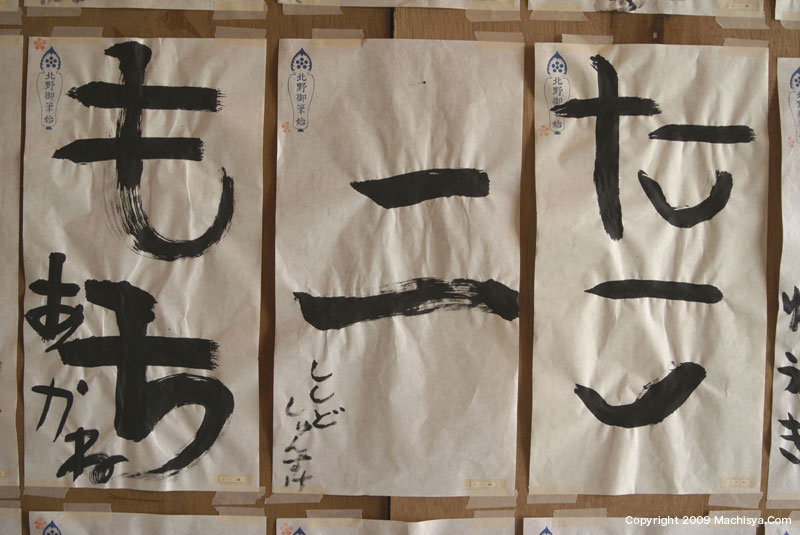 北野御筆始
もち
あかね
北野御筆始
二
ししど
しゅんすけ
北野御筆始
たこ
ゆうき
Copyright 2009 Machisya.Com